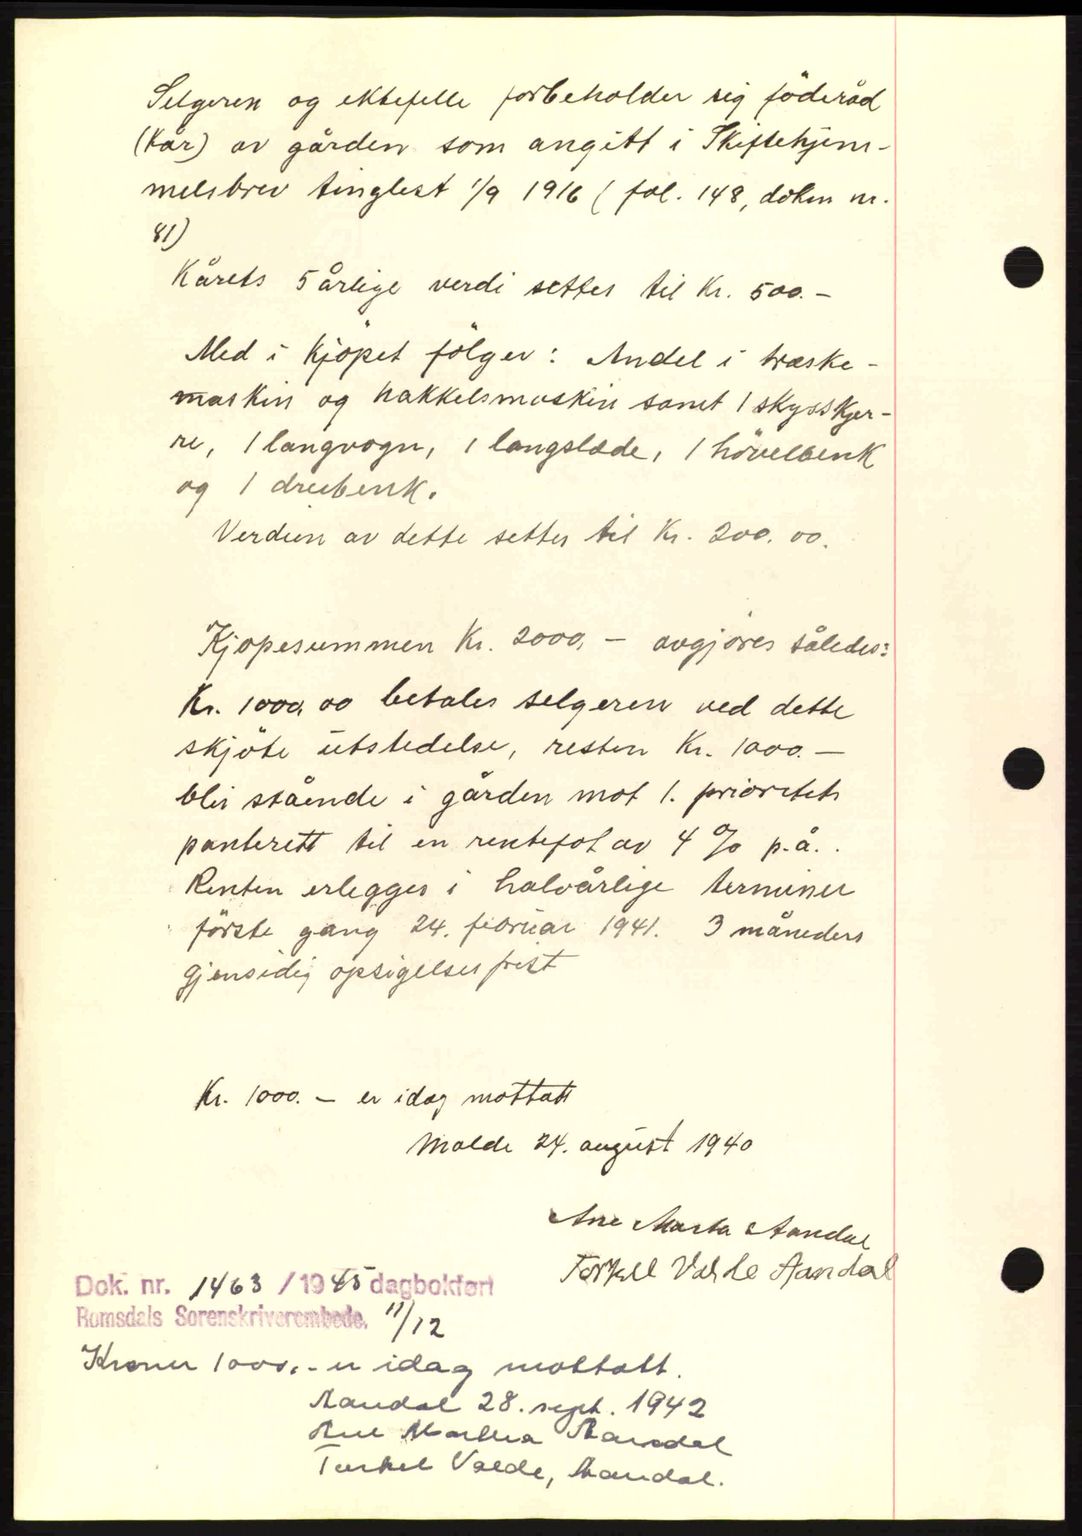 Selgeren og ektefelle forbeholder sig föderåd
(kår) av gården som angitt i Skiftehjem-
melsbrev tinglest 1/9 1916 ( fol. 148, dokm nr.
81)
Kårets 5 årlige verdi settes til Kr. 500. -
Med i kjöpet fölger : Andel i træske-
maskin og hakkelsmaskin samt 1 skysskjer-
re, 1 langvogn, 1 langslæde, 1 hövelbenk
og 1 dreibenk.
Verdien av dette settes til Kr. 200.00.
Kjöpesummen Kr. 2000, - avgjöres således:
Kr. 1000,00 betales selgeren ved dette
skjöte utstedelse, resten Kr. 1000. -
blir stående i gården mot 1. prioritets
panterett til en rentefot av 4 % p.å..
Renten erlegges i halvårlige terminer
förste gang 24. februar 1941. 3 måneders
gjensidig opsigelsesfrist
Kr. 1000. - er idag mottatt
Molde 24. august 1940
Ane Marta Aandal
Torkell Valde Aandal
Dok. nr. 1463 / 1945 dagbokført
Romsdals Sorenskriverembede. 11/12
Kroner 1000,- er idag mottatt.
Aandal 28. sept. 1942
Ane Martha Aandal
Torkel Valde, Aandal.